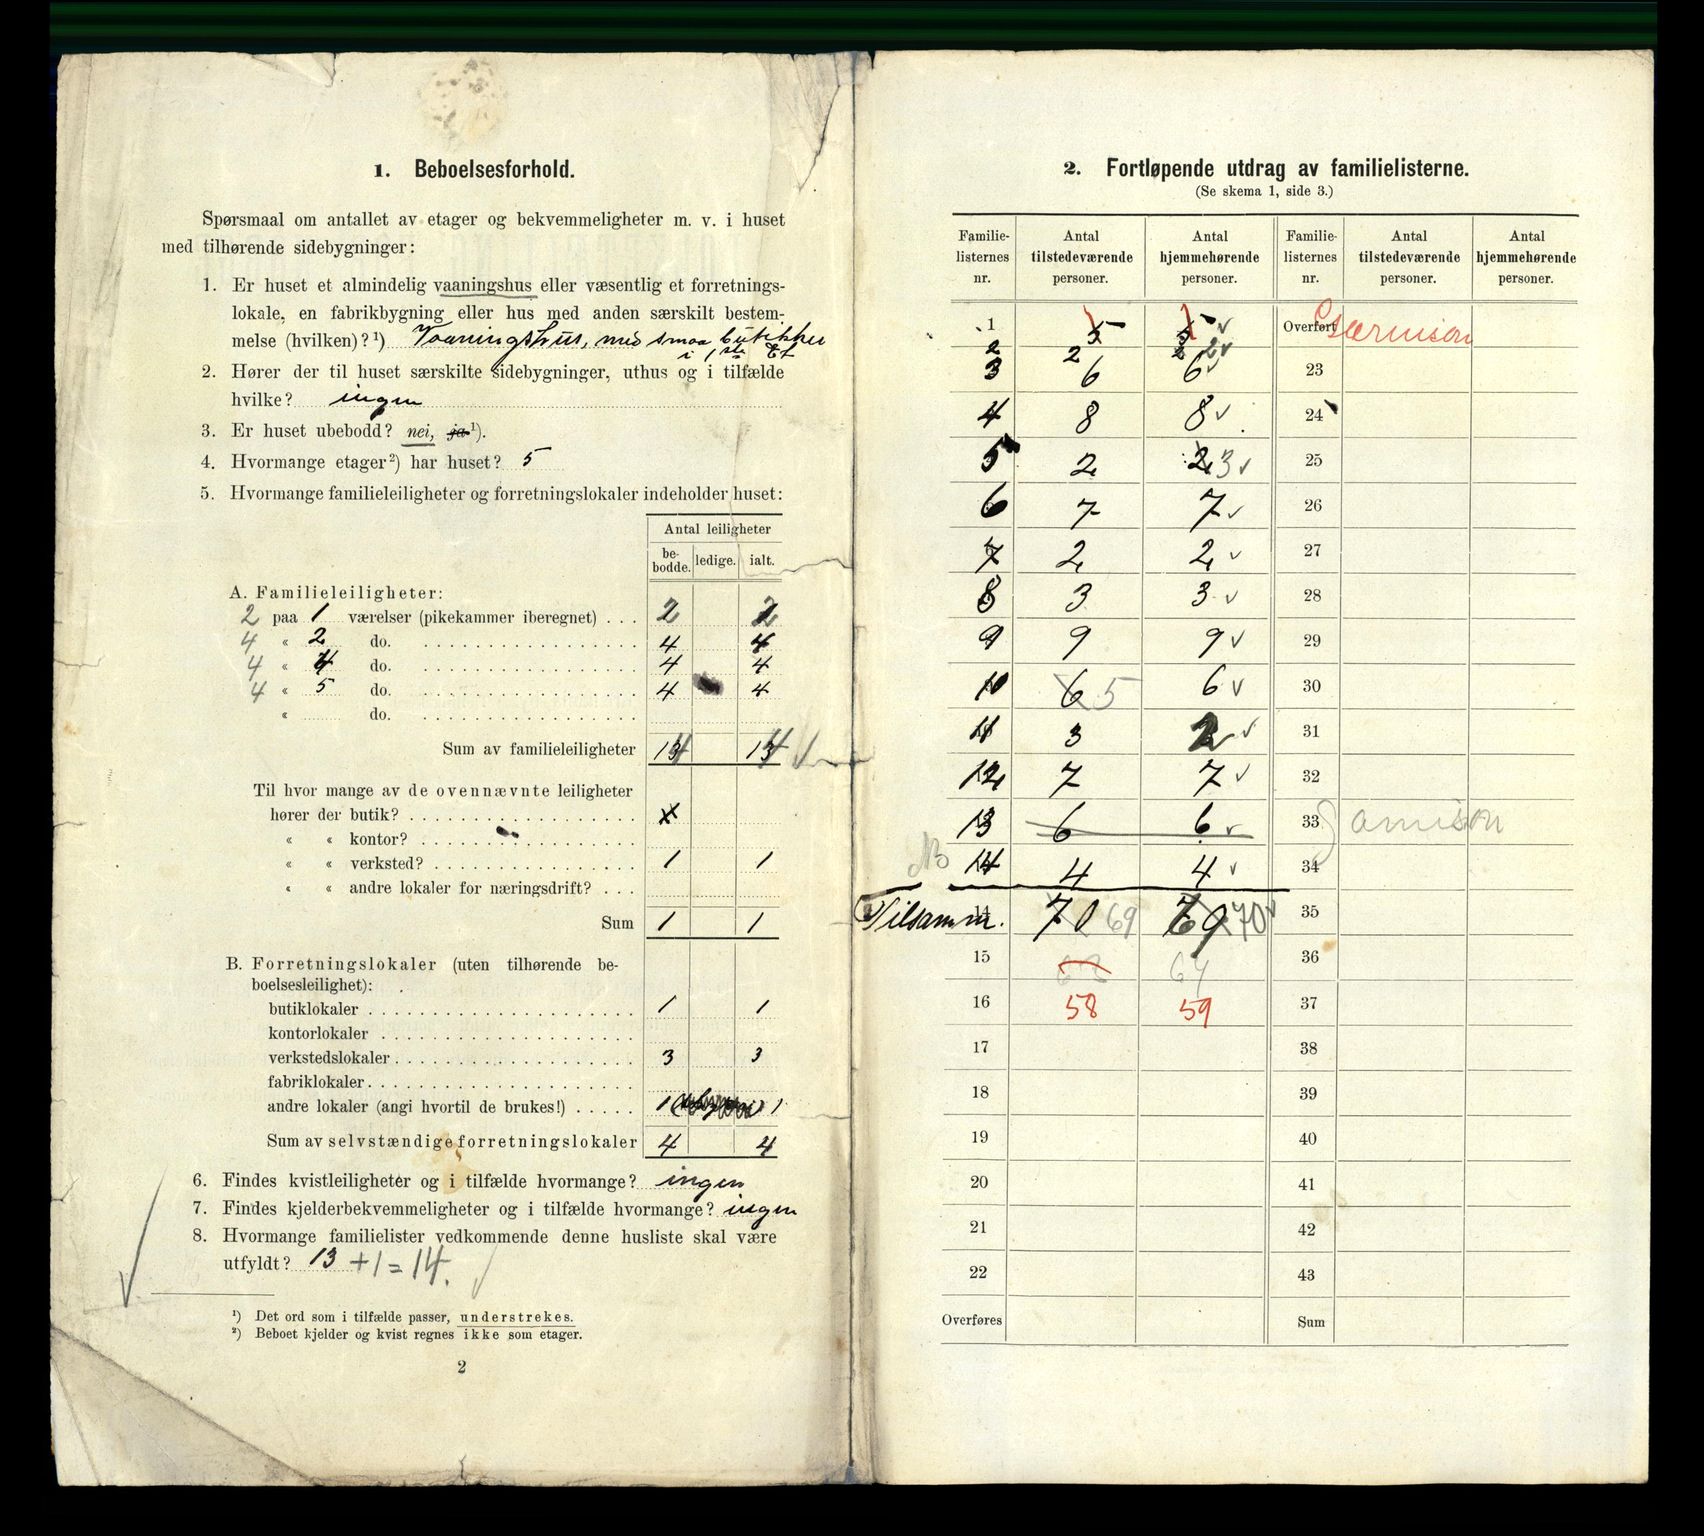 1. Beboelsesforhold.
Spørsmaal om antallet av etager og bekvemmeligheter m. v. i huset
med tilhørende sidebygninger:
1. Er huset et almindelig vaaningshus eller væsentlig et forretnings-
lokale, en fabrikbygning eller hus med anden særskilt bestem-
melse (hvilken)?¹) Vaaningshus, med smaa butikker
i 1ste Et
2. Hører der til huset særskilte sidebygninger, uthus og i tilfælde
hvilke? ingen
3. Er huset ubebodd? nei, ja¹).
4. Hvormange etager²) har huset? 5
5. Hvormange familieleiligheter og forretningslokaler indeholder huset:
Antal leiligheter
be-bodde. ledige. ialt.
A. Familieleiligheter:
2 paa 1 værelser (pikekammer iberegnet) . . . 2 2
4 « 2 do. 4 4
4 « 4 do. 4 4
4 « 5 do. 4 4
« do.
Sum av familieleiligheter 14 14
Til hvor mange av de ovennævnte leiligheter
hører der butik?
« « kontor?
« « verksted? 1 1
« « andre lokaler for næringsdrift? . . .
Sum 1 1
B. Forretningslokaler (uten tilhørende be-
boelsesleilighet):
butiklokaler 1 1
kontorlokaler
verkstedslokaler 3 3
fabriklokaler
andre lokaler (angi hvortil de brukes!) 1 1
Sum av selvstændige forretningslokaler 4 4
6. Findes kvistleiligheter og i tilfælde hvormange? ingen
7. Findes kjelderbekvemmeligheter og i tilfælde hvormange? ingen
8. Hvormange familielister vedkommende denne husliste skal være
utfyldt? 13 + 1 = 14.
¹) Det ord som i tilfælde passer, understrekes.
²) Beboet kjelder og kvist regnes ikke som etager.
2
2. Fortløpende utdrag av familielisterne.
(Se skema 1, side 3.)
Familie-listernes nr. Antal tilstedeværende personer. Antal hjemmehørende personer. Familie-listernes nr. Antal tilstedeværende personer. Antal hjemmehørende personer.
1 5 5 Overført
2 2 2
3 6 6 23
4 8 8 24
5 2 2 3 25
6 7 7 26
7 2 2 27
8 3 3 28
9 9 9 29
10 6 5 6 30
11 3 2 31
12 7 7 32
13 6 6 33
NB 14 4 4 34
Tilsamm. 14 70 69 69 70 35
15 63 64 36
16 58 59 37
17 38
18 39
19 40
20 41
21 42
22 43
Overføres Sum